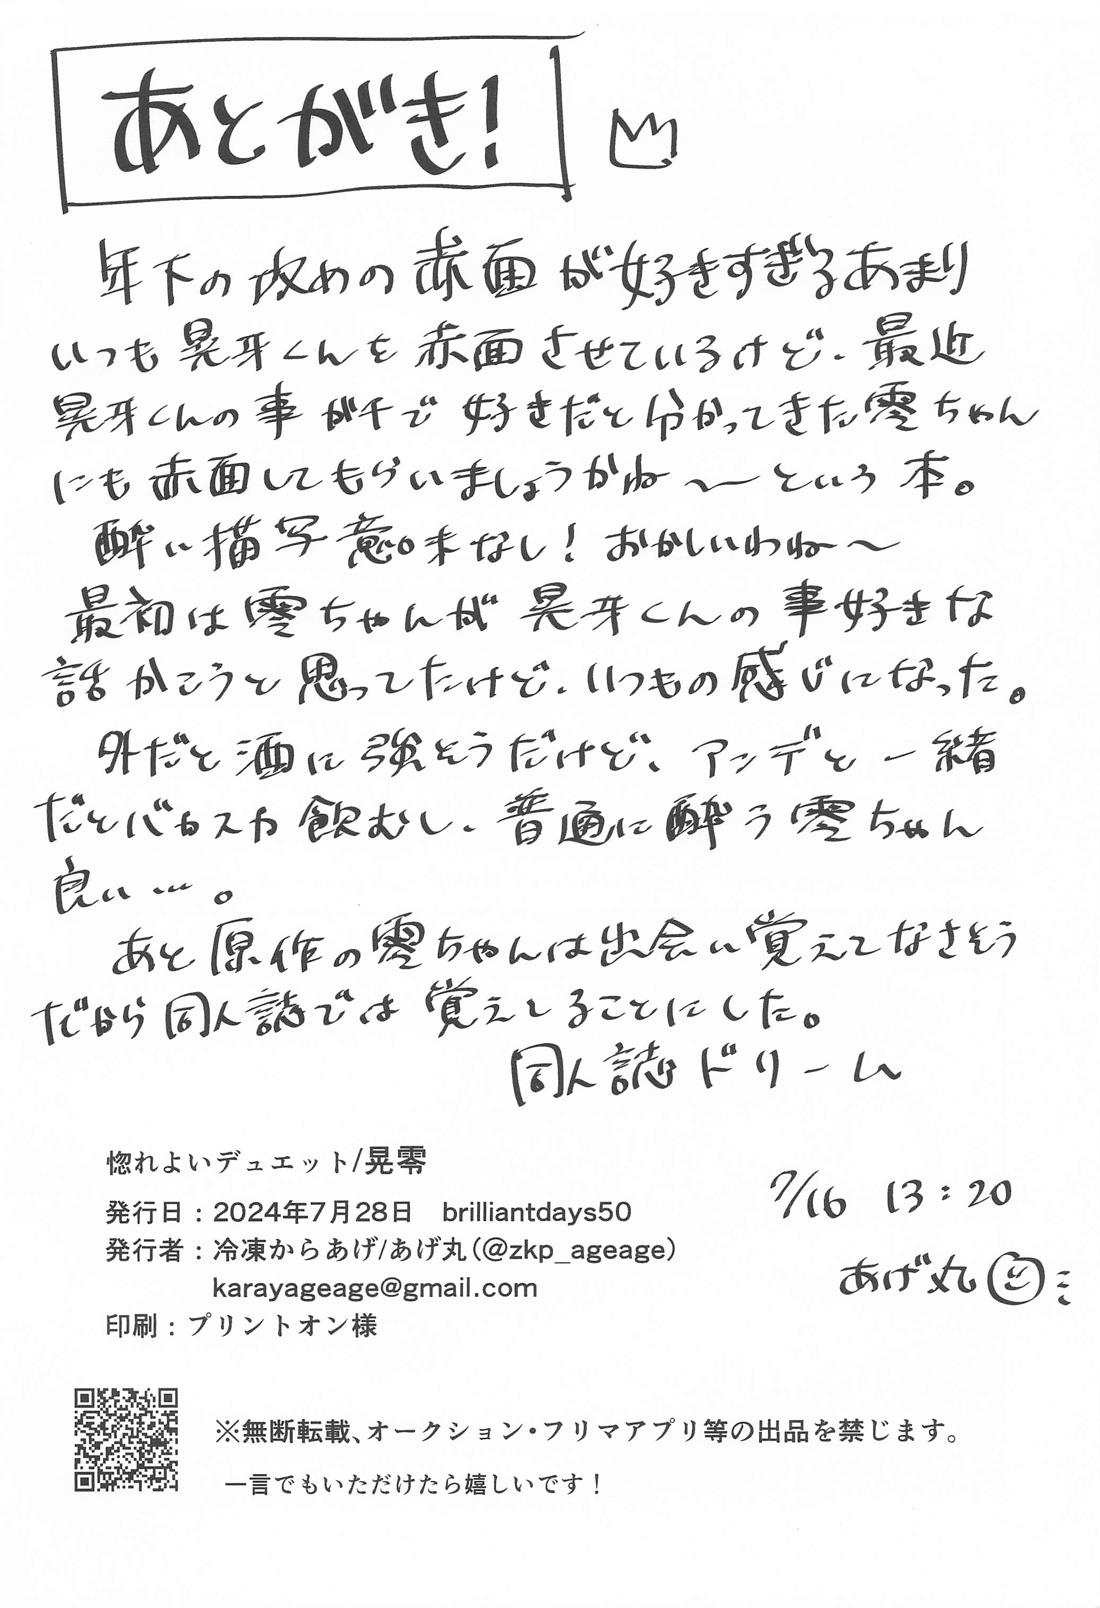 あとがき!
年下の攻めの赤面が好きすぎるあまり
いつも晃牙くんを赤面させているけど、最近
晃牙くんの事がチで好きだと分かってきた零ちゃん
にも赤面してもらいましょうかね〜という本。
酔い描写意味なし!おかしいわね〜
最初は零ちゃんが晃牙くんの事好きな
話かこうと思ってたけど、いつもの感じになった。
外だと酒に強そうだけど、アンデと一緒
だとバカスカ飲むし、普通に酔う零ちゃん
良い…。
あと原作の零ちゃんは出会い覚えてなさそう
だから同人誌では覚えてることにした。
同人誌ドリーム
惚れよいデュエット/晃零
発行日：2024年7月28日 brilliantdays50
発行者：冷凍からあげ/あげ丸(@zkp_ageage)
karayageage@gmail.com
印刷：プリントオン様
7/16 13:20
あげ丸
※無断転載、オークション・フリマアプリ等の出品を禁じます。
一言でもいただけたら嬉しいです！